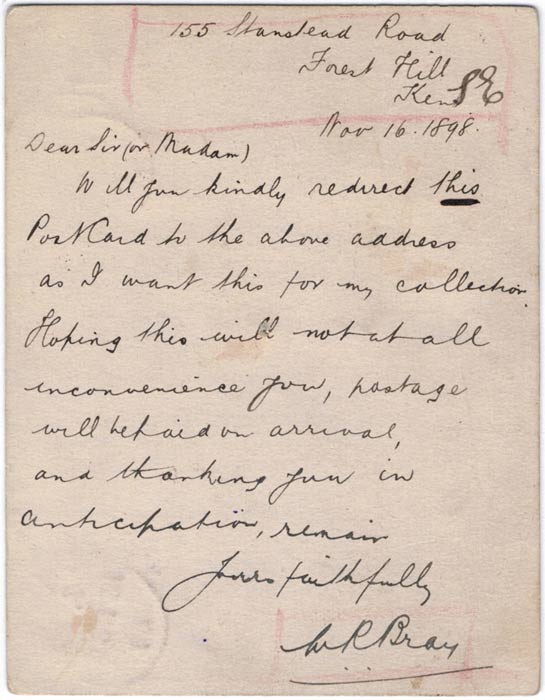 155 Stanstead Road
Forest Hill
Kent SE
Nov 16. 1898.
Dear Sir (or Madam)
Will you kindly redirect this
PostCard to the above address
as I want this for my collection.
Hoping this will not at all
inconvenience you, postage
will be paid on arrival,
and thanking you in
anticipation, remain
Yours faithfully
W R Bray